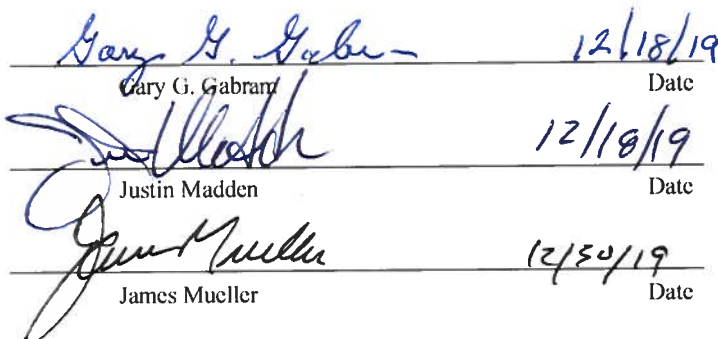 Gary G. Gabram 12/18/19
Gary G. Gabram Date
12/18/19
Justin Madden Date
James Mueller 12/30/19
James Mueller Date